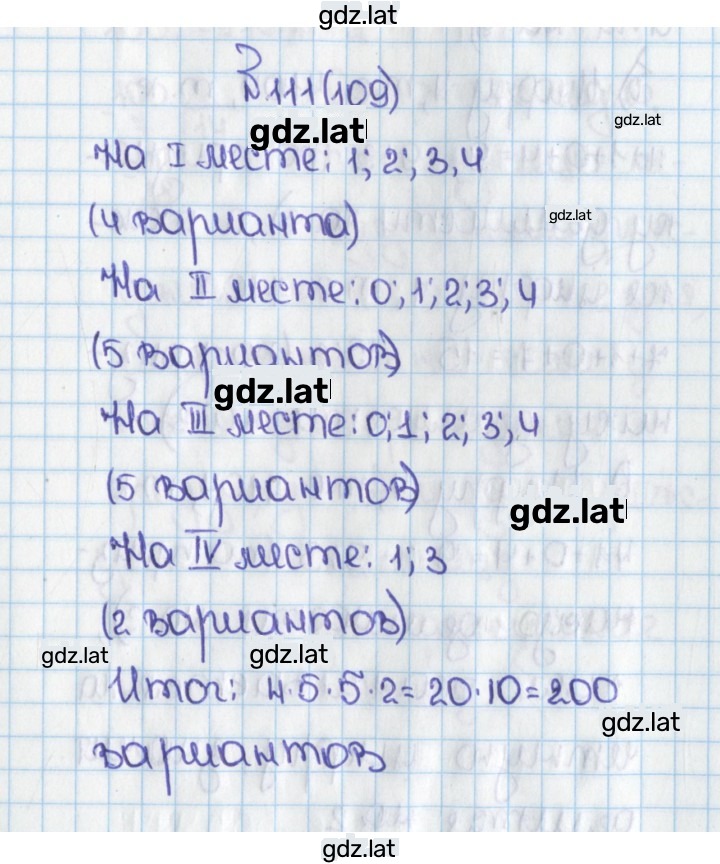 gdz.lat
№111(109)
gdz.lat
gdz.lat
На I месте: 1; 2; 3, 4
gdz.lat
(4 варианта)
На II месте: 0; 1; 2; 3; 4
(5 вариантов)
gdz.lat
На III месте: 0; 1; 2; 3; 4
(5 вариантов)
gdz.lat
На IV месте: 1; 3
(2 вариантов)
gdz.lat gdz.lat
Итог: 4·5·5·2=20·10=200
gdz.lat
вариантов
gdz.lat